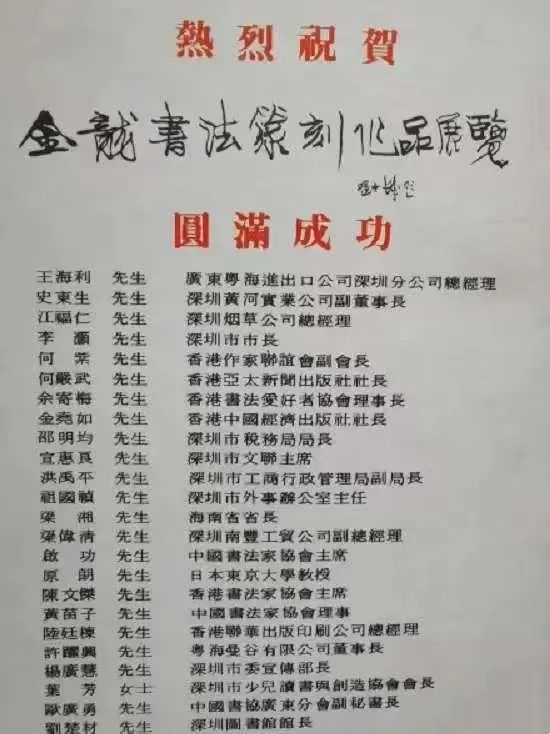 熱烈祝賀
金龍書法篆刻作品展覽
圓滿成功
王海利 先生 廣東粵海進出口公司深圳分公司總經理
史東生 先生 深圳黃河實業公司副董事長
江福仁 先生 深圳烟草公司總經理
李灝 先生 深圳市市長
何紫 先生 香港作家聯誼會副會長
何嚴武 先生 香港亞太新聞出版社社長
余寄梅 先生 香港書法愛好者協會理事長
金堯如 先生 香港中國經濟出版社社長
邵明均 先生 深圳市稅務局局長
宣惠良 先生 深圳市文聯主席
洪禹平 先生 深圳市工商行政管理局副局長
祖國禎 先生 深圳市外事辦公室主任
梁湘 先生 海南省省長
梁偉清 先生 深圳南豐工貿公司副總經理
啟功 先生 中國書法家協會主席
原朗 先生 日本東京大學教授
陳文傑 先生 香港書法家協會主席
黃苗子 先生 中國書法家協會理事
陸廷棟 先生 香港聯華出版印刷公司總經理
許躍興 先生 粵海曼谷有限公司董事長
楊廣慧 先生 深圳市委宣傳部長
葉芳 女士 深圳市少兒讀書與創造協會會長
歐廣勇 先生 中國書協廣東分會副秘書長
劉楚材 先生 深圳圖書館館長